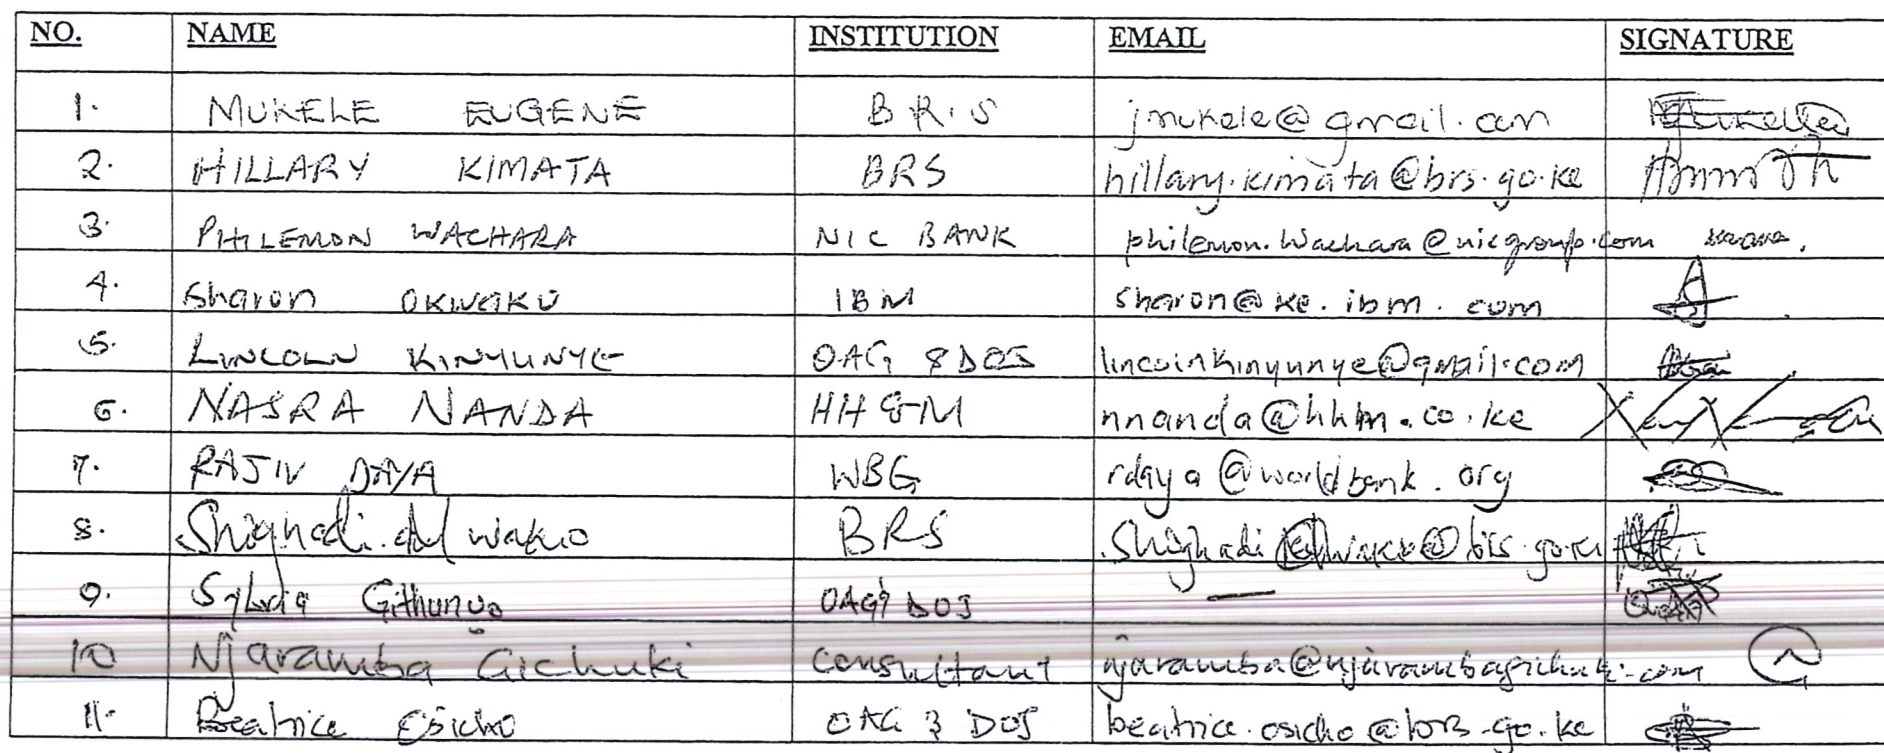 NO. NAME INSTITUTION EMAIL SIGNATURE
1. MUKELE EUGENE BRS jmukele@gmail.com
2. HILLARY KIMATA BRS hillary.kimata@brs.go.ke
3. PHILEMON WACHARA NIC BANK philemon.wachara@nicgroup.com
4. Sharon OKWAKU IBM sharon@ke.ibm.com
5. LINCOLN KINYUNYE OAG & DOJ lincolnkinyunye@gmail.com
6. NASRA NANDA HH&M nnanda@hhm.co.ke
7. RAJIV DAYA WBG rdaya@worldbank.org
8. Shighadi wakio BRS
9. Sylvia Githunyo OAG & DOJ —
10 Njaramba Gichuki Consultant njaramba@njarambagichuki.com
11. Beatrice Osicho OAG & DOJ beatrice.osicho@brs.go.ke